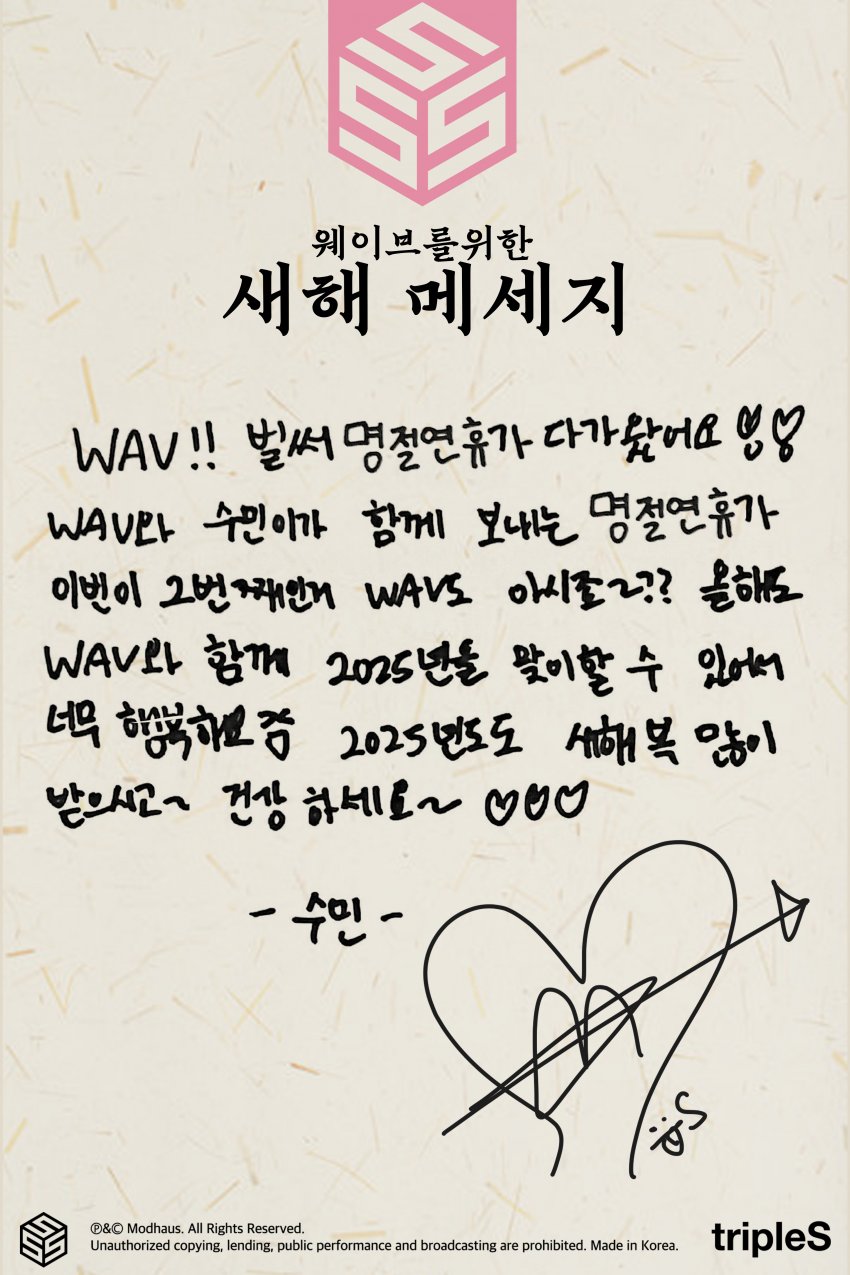 웨이브를위한
새해 메세지
WAV!! 벌써 명절연휴가 다가왔어요 ♡♡
WAV와 수민이가 함께 보내는 명절연휴가
이번이 2번째인거 WAV도 아시죠~?? 올해도
WAV와 함께 2025년을 맞이할 수 있어서
너무 행복하고요 2025년도도 새해 복 많이
받으시고~ 건강 하세요~ ♡♡♡
- 수민 -
℗&© Modhaus. All Rights Reserved.
Unauthorized copying, lending, public performance and broadcasting are prohibited. Made in Korea.
tripleS